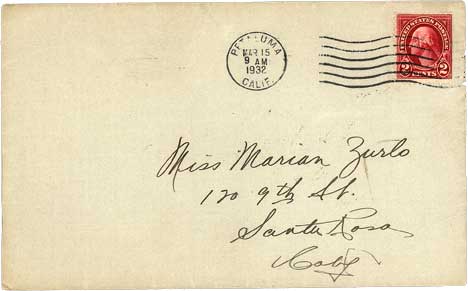 PETALUMA
MAR 15
9 AM
1932
CALIF.
UNITED STATES POSTAGE
2 CENTS 2
Miss Marian Zurlo
120 9th St.
Santa Rosa
Calif